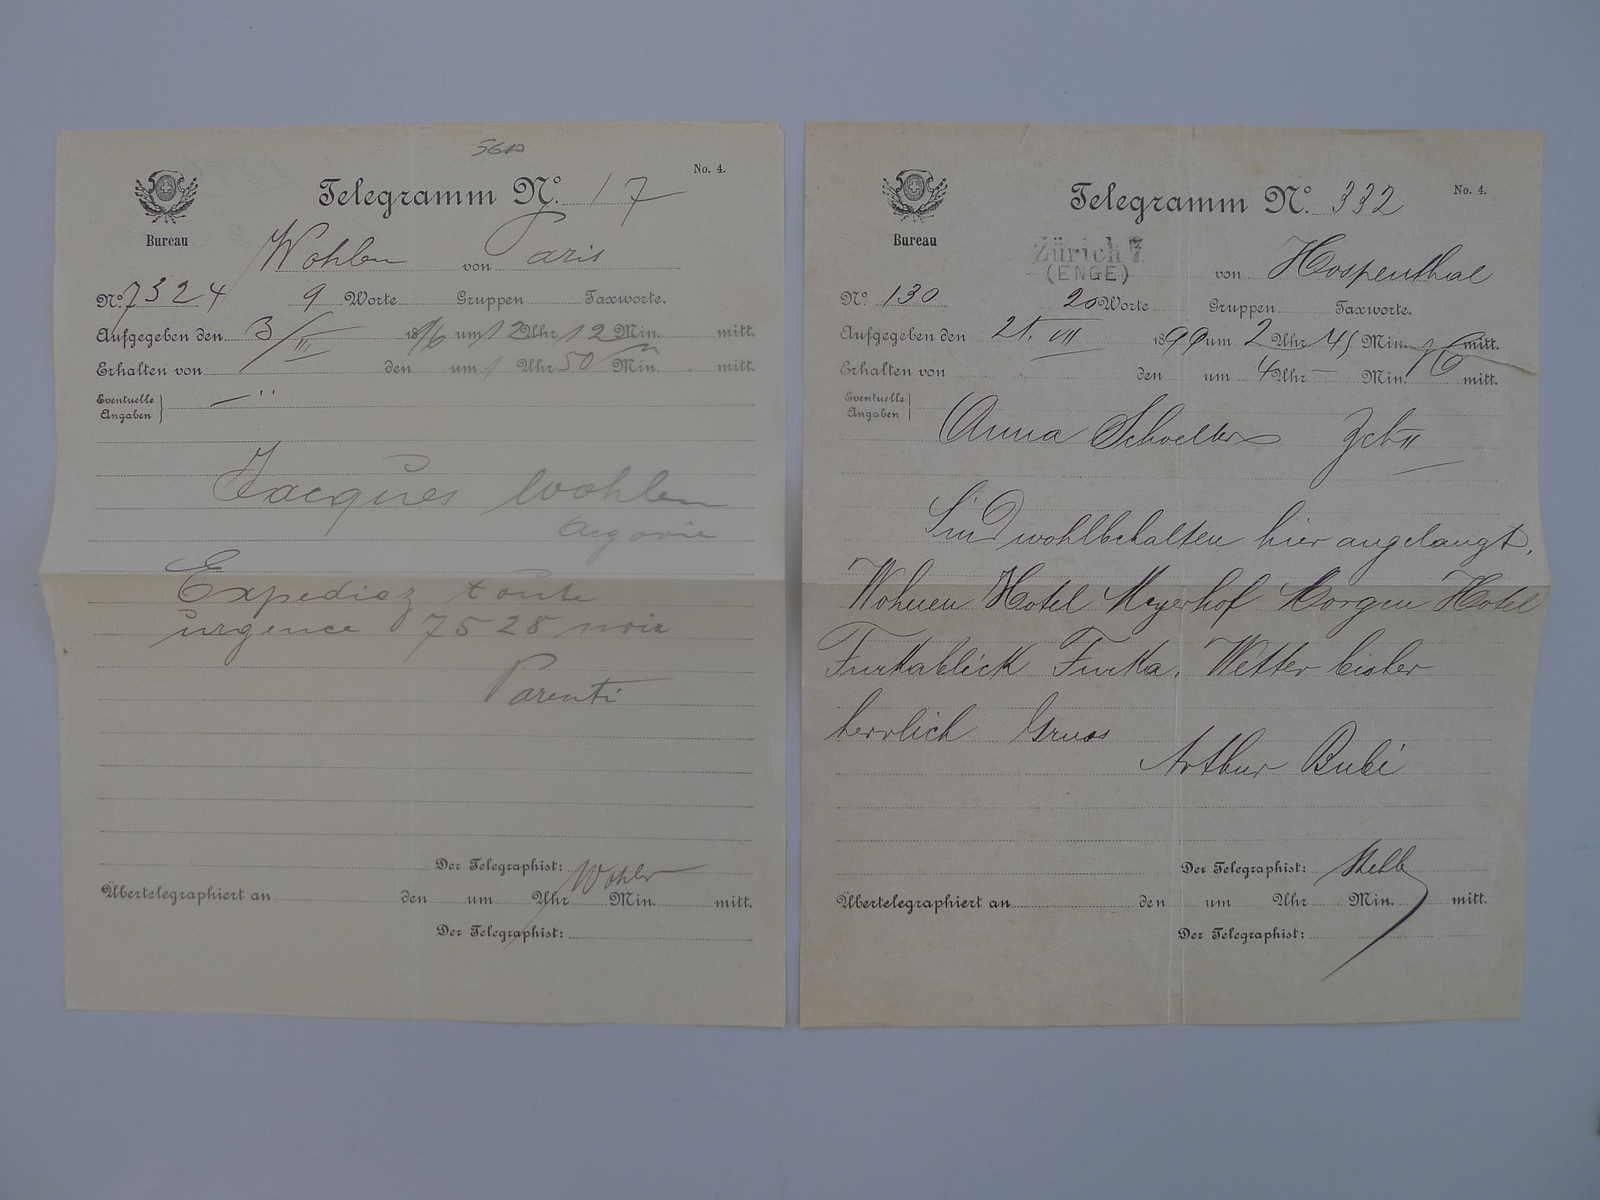 No. 4.
Telegramm No. 17
Bureau
Wohlen von Paris
No. 7324 9 Worte Gruppen Taxworte.
Aufgegeben den 3/III 1896 um 12 Uhr 12 Min. mitt.
Erhalten von den um 1 Uhr 50 Min. mitt.
Eventuelle
Angaben
Jacques Wohlen
Argovie
Expediez toute
urgence 7528 noix
Parenti
Der Telegraphist: Wohler
Übertelegraphiert an den um Uhr Min. mitt.
Der Telegraphist:
No. 4.
Telegramm No. 332
Bureau
Zürich
(ENGE)
von Hospenthal
No. 130 20 Worte Gruppen Taxworte.
Aufgegeben den 21. VII 1899 um 2 Uhr 45 Min. mitt.
Erhalten von den um 4 Uhr — Min. mitt.
Eventuelle
Angaben
Anna Schoeller Zch II
Sind wohlbehalten hier angelangt.
Wohnen Hotel Meyerhof Morgen Hotel
Furkablick Furka. Wetter bisher
herrlich Gruss
Arthur Bubi
Der Telegraphist:
Übertelegraphiert an den um Uhr Min. mitt.
Der Telegraphist: